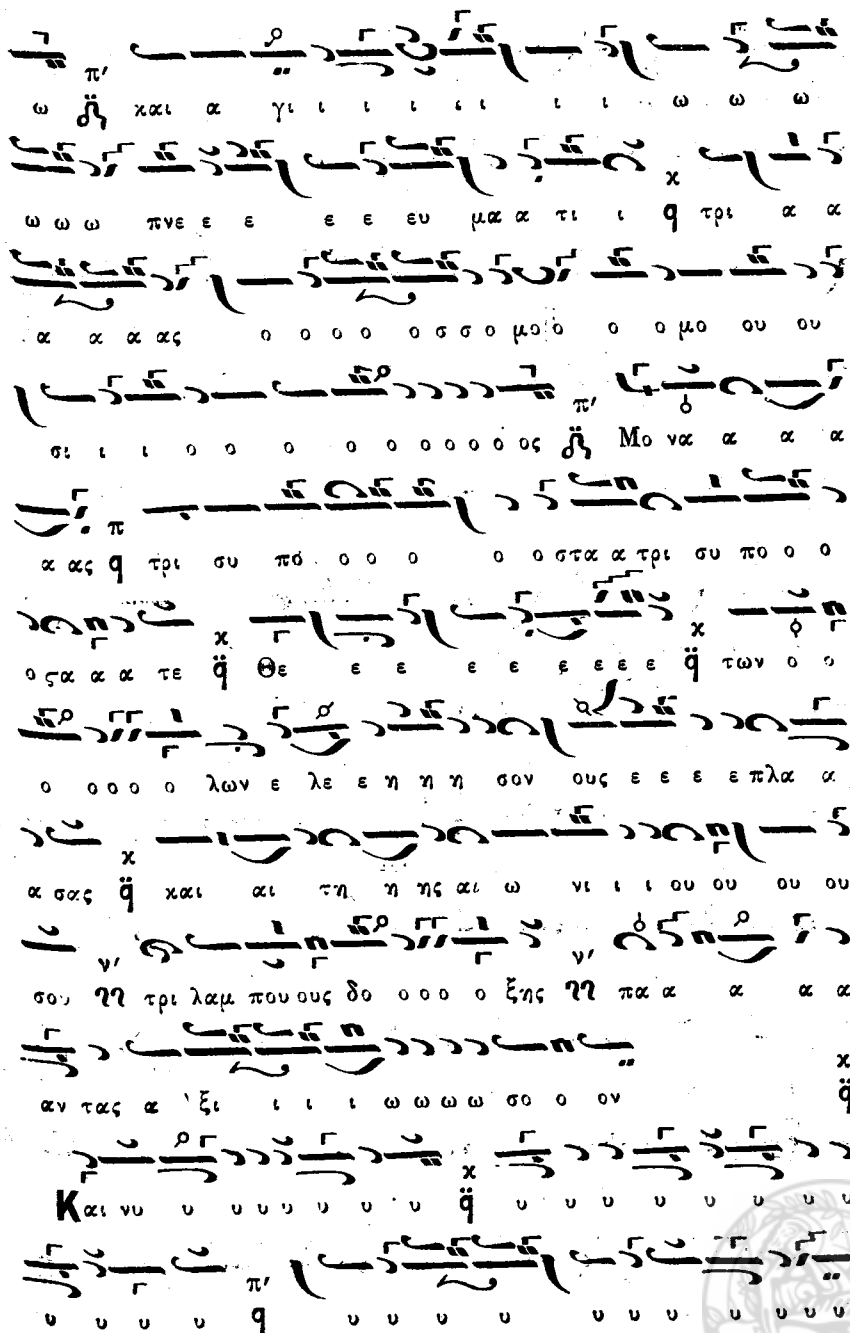 ω π′ και α γι ι ι ι ι ι ι ι ω ω ω
ω ω ω πνε ε ε ε ε ευ μα α τι ι κ q τρι α α
α α α ας ο ο ο ο ο σ σ ο μο ο ο ο μο ου ου
σι ι ι ο ο ο ο ο ο ο ο ο ος π′ Μο να α α α
α ας π q τρι συ πο ο ο ο ο ο στα α τρι συ πο ο ο
ο ςα α α τε κ q̈ Θε ε ε ε ε ε ε ε κ q̈ των ο ο
ο ο ο ο ο λων ε λε ε η η η σον ους ε ε ε ε πλα α
α σας κ q̈ και αι τη η ης αι ω νι ι ι ου ου ου ου
σου ν′ τρι λαμ που ους δο ο ο ο ο ξης ν′ πα α α α α
αν τας α ξι ι ι ι ω ω ω ω σο ο ον κ q̈
Και νυ υ υ υ υ υ υ υ κ q̈ υ υ υ υ υ υ υ
υ υ υ υ π′ q υ υ υ υ υ υ υ υ υ υ υ